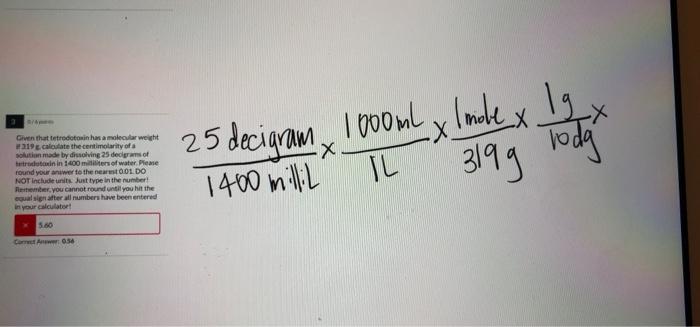 3
Given that tetrodotoxin has a molecular weight
319 g, calculate the centimolarity of a
solution made by dissolving 25 decigrams of
tetrodotoxin in 1400 milliliters of water. Please
round your answer to the nearest 0.01. DO
NOT include units. Just type in the number!
Remember, you cannot round until you hit the
equal sign after all numbers have been entered
in your calculator!
× 5.60
Correct Answer: 0.56
25 decigram × 1000mL × 1 mole × 1g ×
1400 milliL 1L 319g 10dg